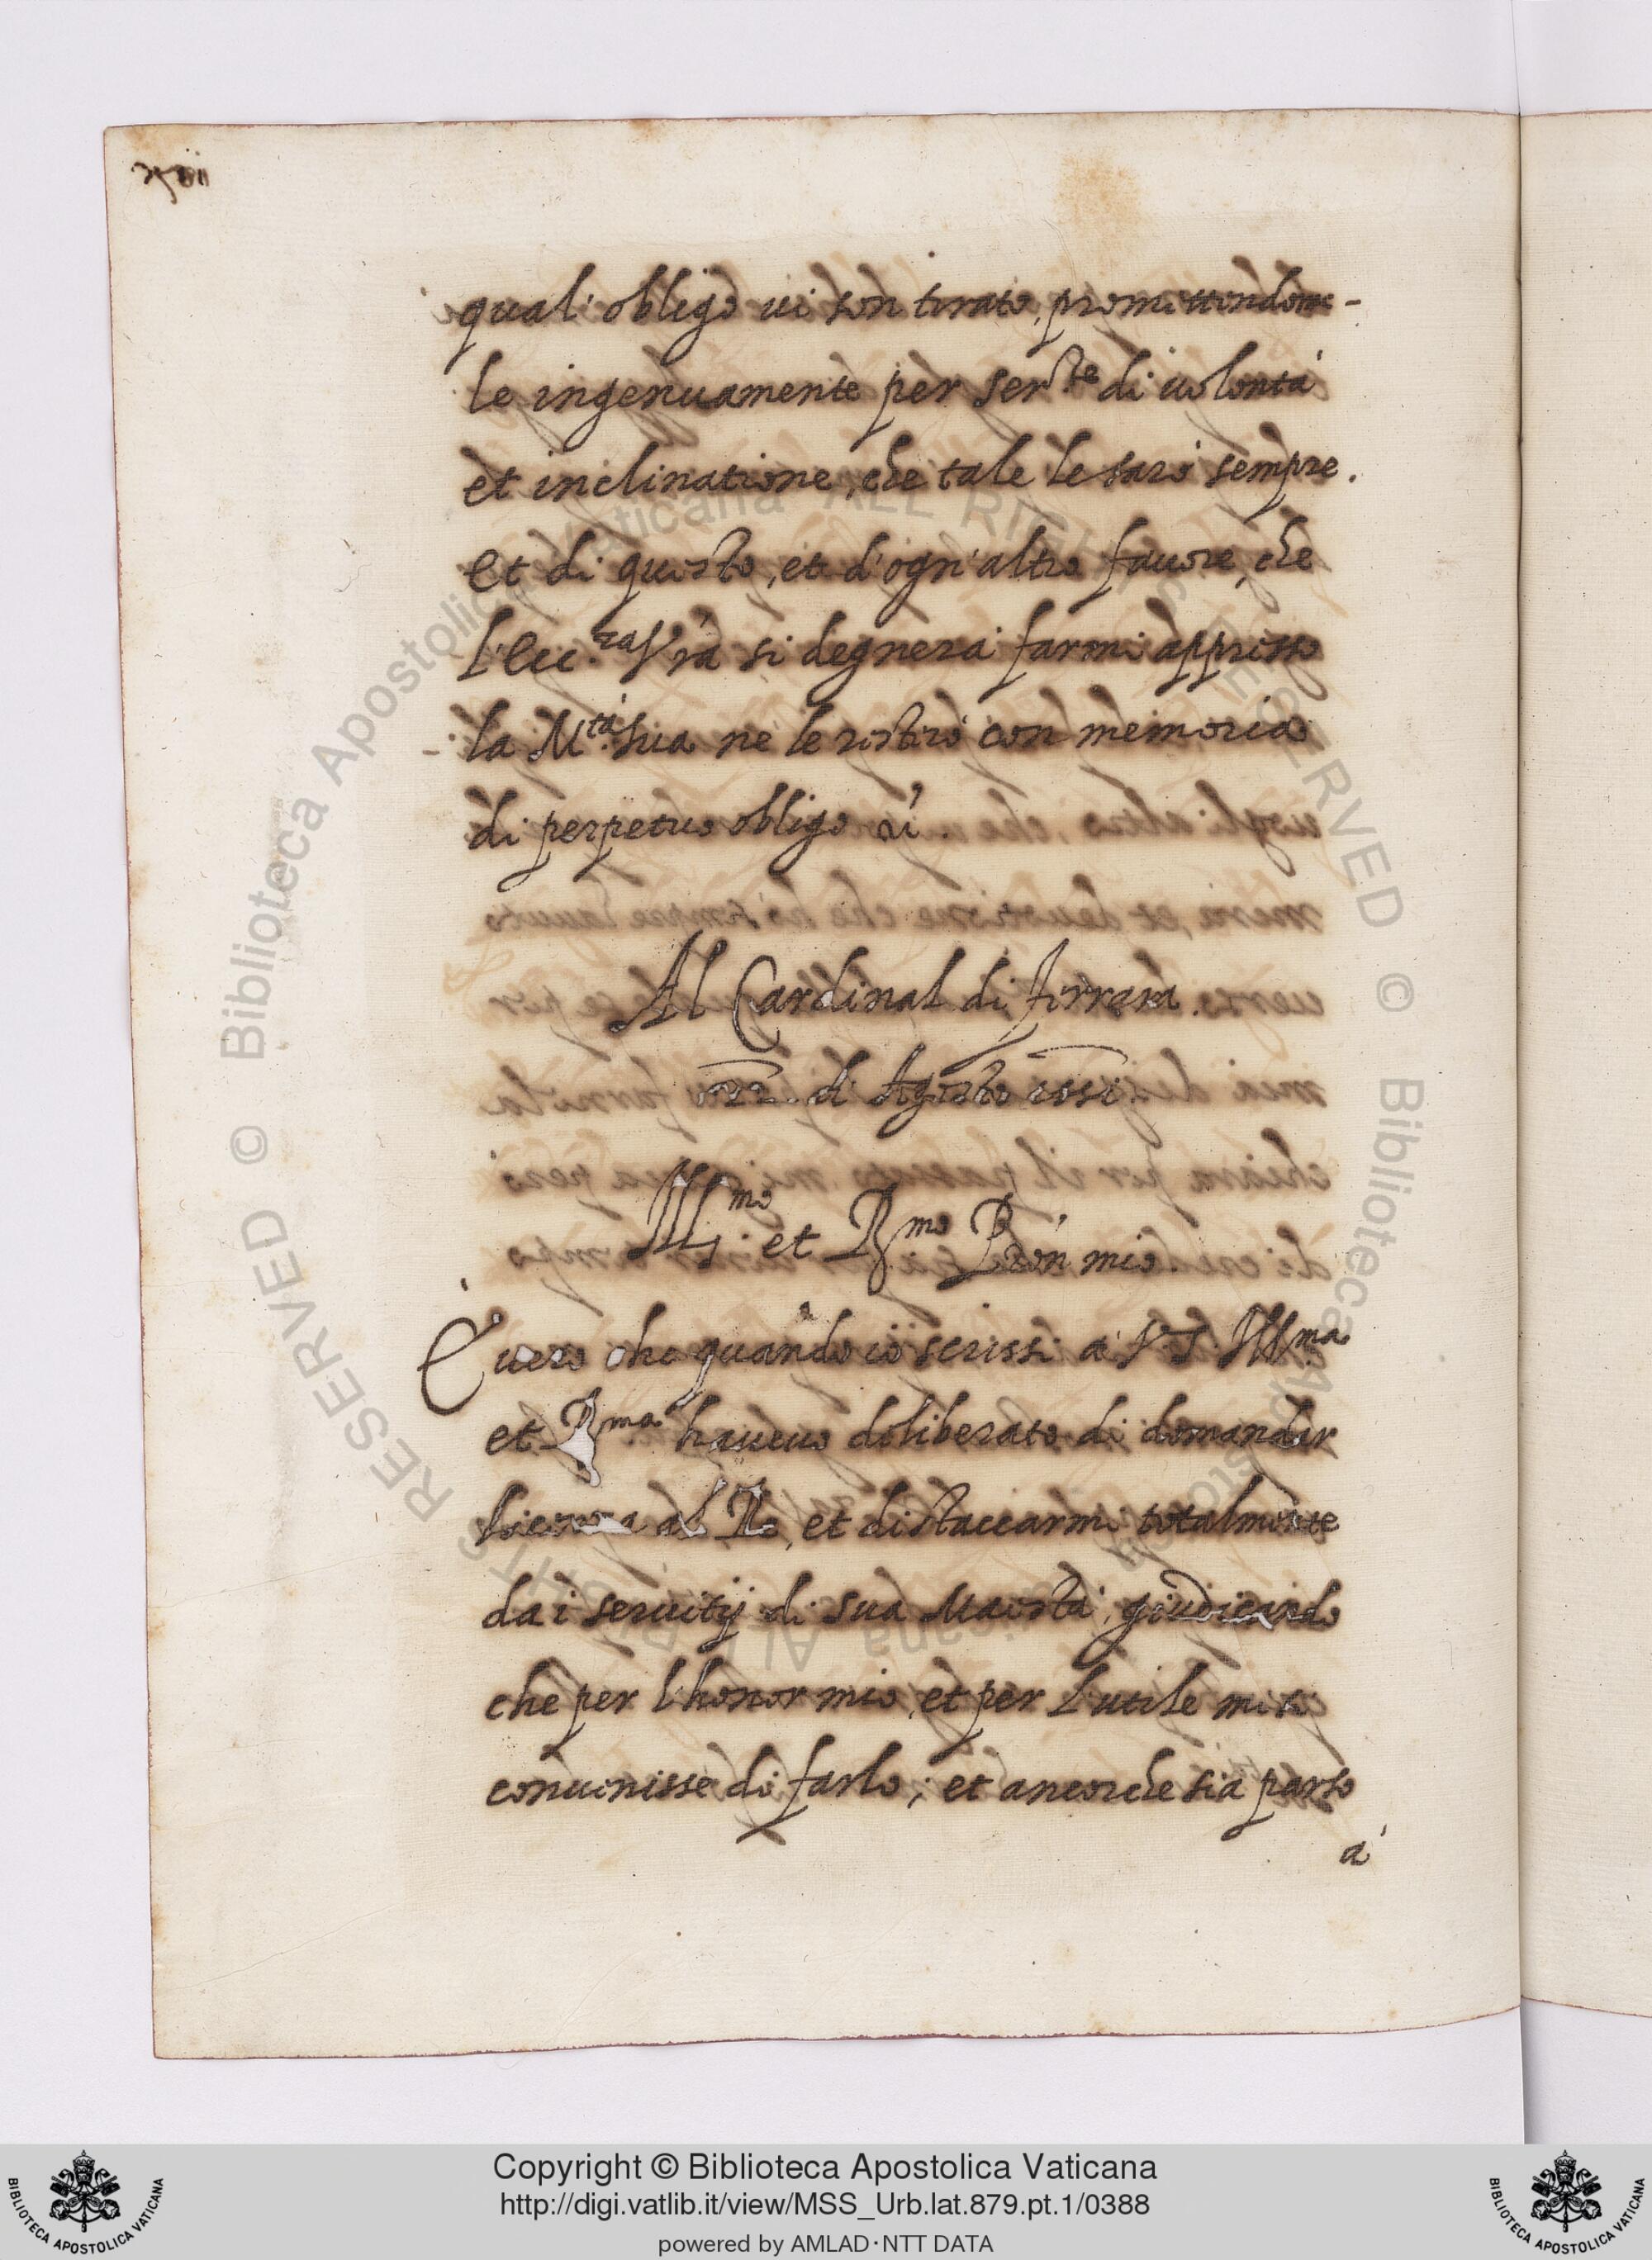 qual' obligo vi son tirato, promettendome-
le ingenuamente per ser.te di uolontà
et inclinatione, che tale le sarò sempre.
Et di questo, et d'ogn'altro fauore, che
l'Ecc.za V'ra si degnerà farmi appresso
la M.tà Sua ne le restirò con memoria
di perpetuo obligo
Al Cardinal di Ferrara.
di Agosto
Ill.mo et R.mo P'ron mio.
È uero che quando io scrissi à V. S. Ill.ma
et R.ma haueuo deliberato di domandar
licenza al Re, et distaccarmi totalmente
dai seruitij di sua Maestà, giudicando
che per l'honor mio, et per l'utile mi si
conuenisse di farlo; et ancorche sia parso
à
Copyright © Biblioteca Apostolica Vaticana
http://digi.vatlib.it/view/MSS_Urb.lat.879.pt.1/0388
powered by AMLAD·NTT DATA
BIBLIOTECA APOSTOLICA VATICANA
BIBLIOTECA APOSTOLICA VATICANA